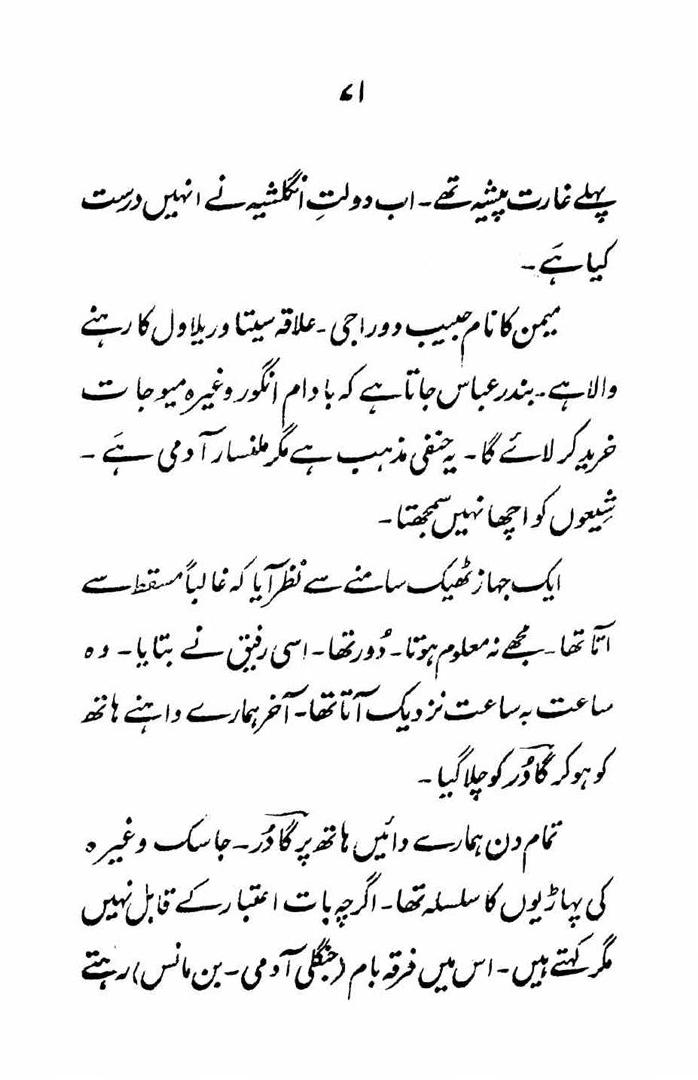 ۷۱
پہلے غارت پیشیہ تھے۔ اب دولتِ انگلشیہ نے انہیں درست
کیا ہَے۔
میمن کا نام حبیب دوراجی۔ علاقہ سیتا وریلاول کا رہنے
والا ہے۔ بندر عباس جاتا ہے کہ بادام انگور وغیرہ میوجات
خرید کر لائے گا۔ یہ حنفی مذہب ہے مگر ملنسار آدمی ہَے۔
شِیعوں کو اچھا نہیں سمجھتا۔
ایک جہاز ٹھیک سامنے سے نظر آیا کہ غالباً مسقط سے
آتا تھا۔ مجھے نہ معلوم ہوتا۔ دُور تھا۔ اسی رفیق نے بتایا۔ وہ
ساعت بہ ساعت نزدیک آتا تھا۔ آخر ہمارے داہنے ہاتھ
کو ہو کر گادُر کو چلا گیا۔
تمام دن ہمارے دائیں ہاتھ پر گادُر۔ جاسک وغیرہ
کی پہاڑیوں کا سلسلہ تھا۔ اگرچہ بات اعتبار کے قابل نہیں
مگر کہتے ہیں۔ اس میں فرقہ بام (جنگلی آدمی۔ بن مانس) رہتے